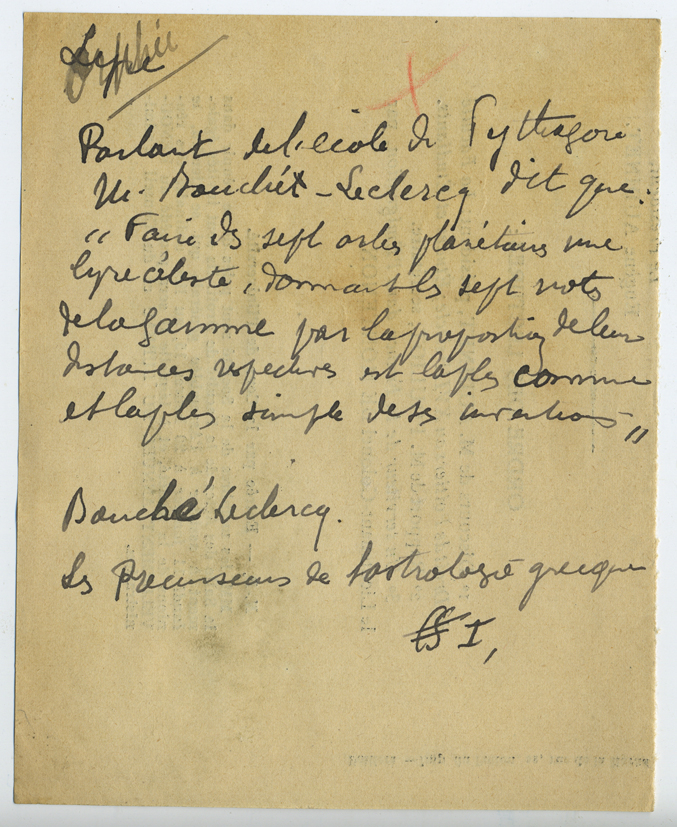 Orphée
Lyre
Parlant de l'école de Pythagore
M. Bouché-Leclercq dit que :
"Faire des sept orbes planétaires une
lyre céleste, donnant les sept notes
de la gamme par la proportion de leurs
distances respectives est la plus connue
et la plus simple de ses inventions"
Bouché Leclercq.
Les Précurseurs de l'astrologie grecque
I,